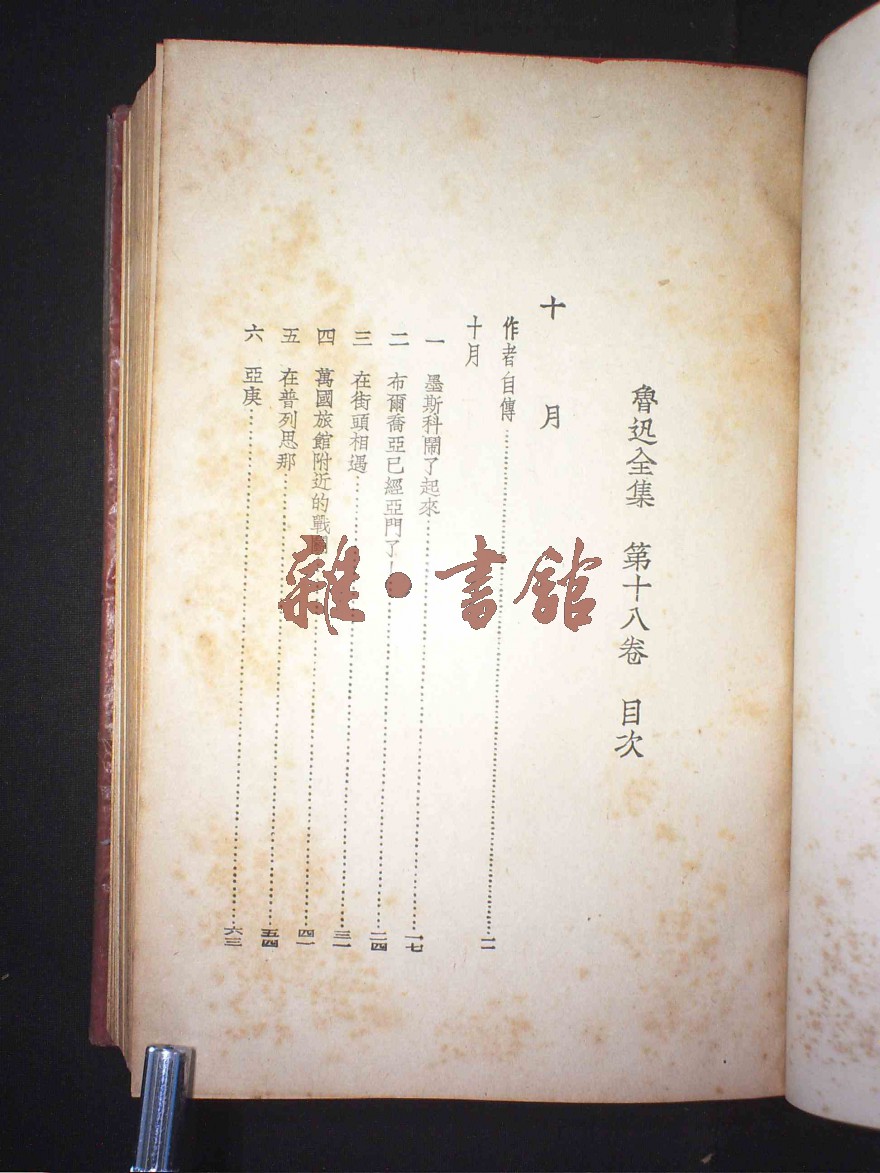 魯迅全集 第十八卷 目次
十月
作者自傳……二
十月
一 墨斯科鬧了起來……一七
二 布爾喬亞已經亞門了!……二四
三 在街頭相遇……三一
四 萬國旅館附近的戰鬭……四一
五 在普列思那……五四
六 亞庚……六三
雜•書館